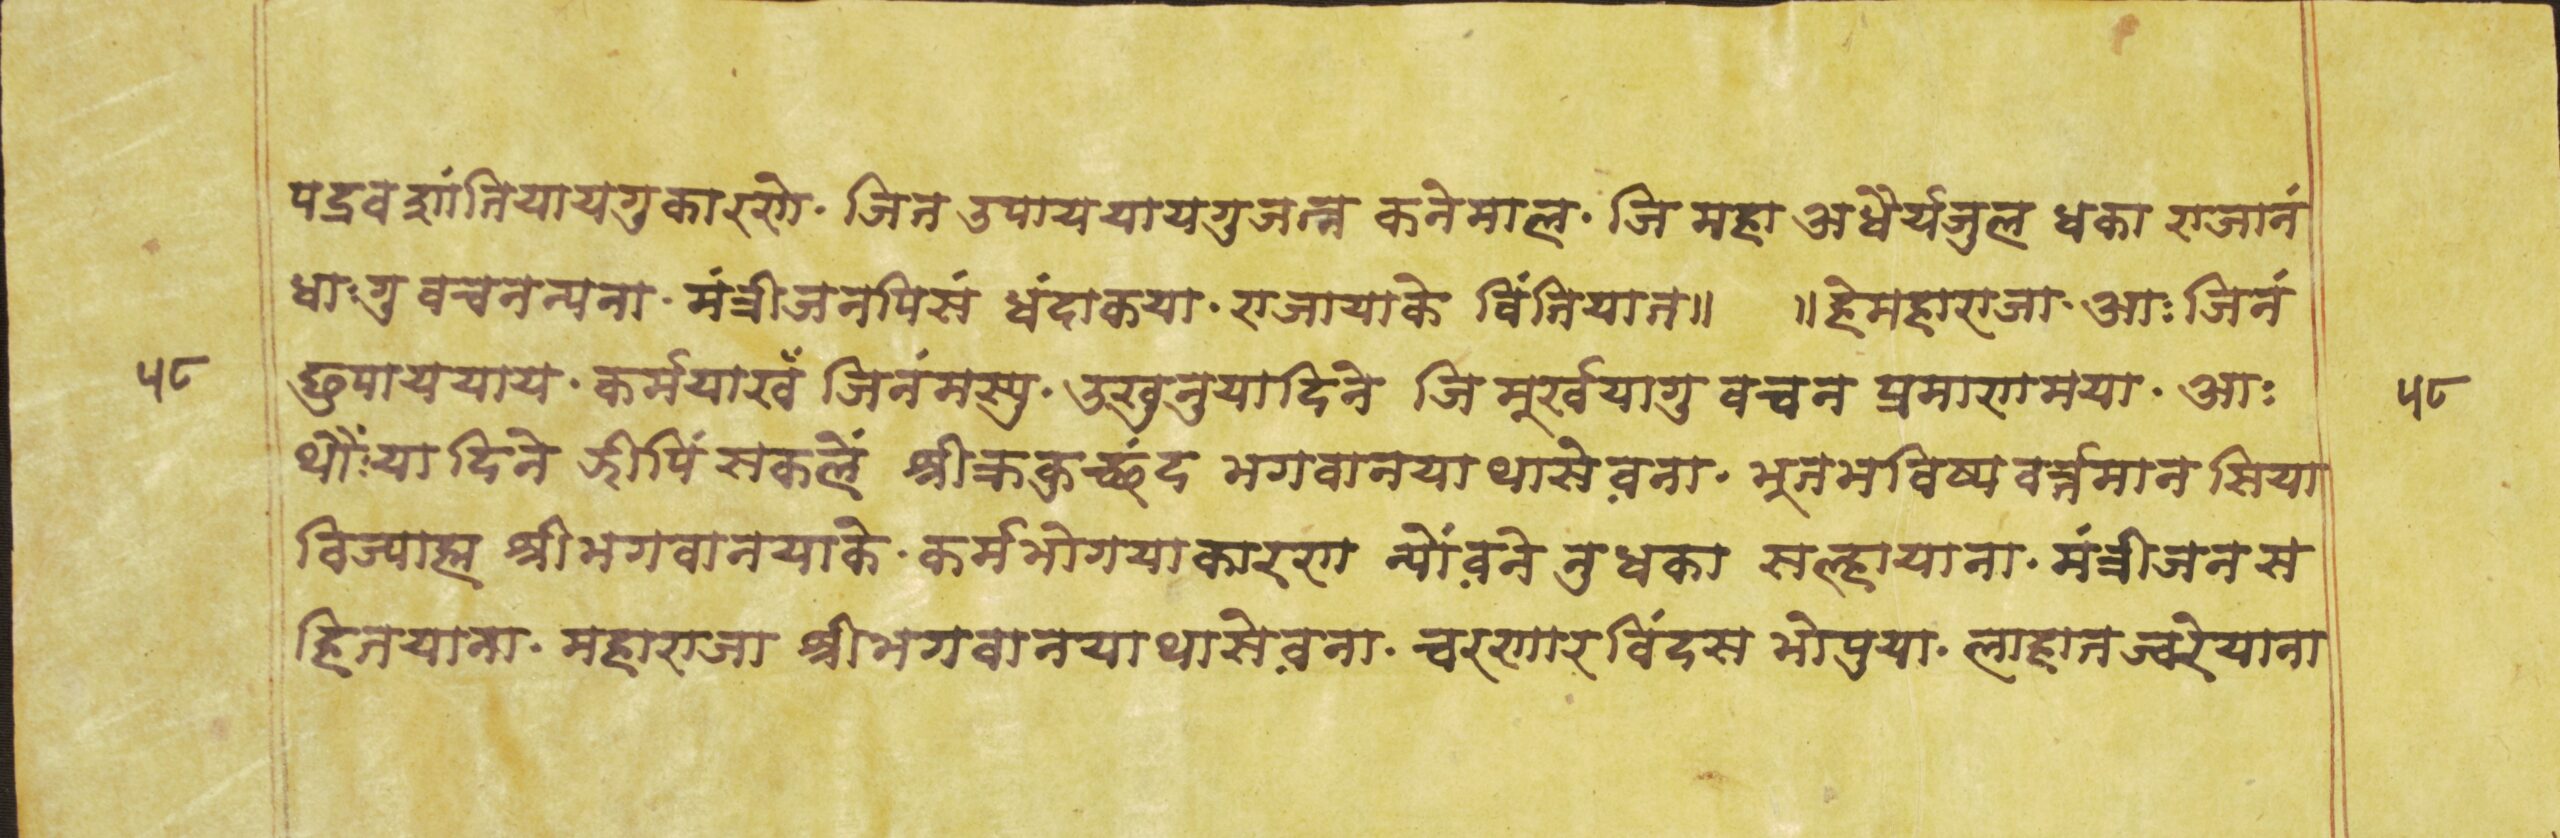 पद्रव शांतियायगुकारणे · जिन उपाययायगुजत्न कनेमाल · जि महा अधैर्यजुल धका राजानं
धाःगु वचनन्यना · मंत्रीजनपिसं धंदाकया · राजायाके विंतियात॥ ॥हेमहाराजा · आः जिनं
छुपाययाय · कर्मयाखँ जिनंमस्यु · उखुनुयादिने जि मूर्खयागु वचन प्रमाणमया · आः
५८ ५८
थौंःयादिने झीपिं सकलें श्रीक्रकुच्छंद भगवानयाथासे व़ना · भूतभविष्यवर्त्तमान सिया
विज्याह्म श्रीभगवानयाके · कर्मभोगयाकारण न्यों व़ने नु धका सल्हायाना · मंत्रीजनस
हितयाना · महाराजा श्रीभगवानयाथासे व़ना · चरणारविंदस भोपुया · लाहातज्वरेयाना